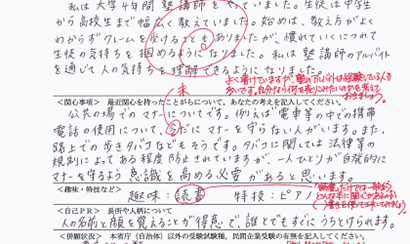 私は大学4年間塾講師をやっていました。生徒は中学生
から高校生まで幅広く教えていました。始めは、教え方がよく
わからずクレームを受けることもありましたが、慣れていくにつれて
生徒の気持ちを掴めるようになりました。私は塾講師のアルバイト
を通じて人の気持ちを理解できるようになりました。
よく書けていますが、塾のアルバイトは経験している人も
多いです。自分なら何を売りこみたいのかを考えて
おきましょう。
<関心事項> 最近関心を持ったことがらについて、あなたの考えを記入してください。
未
公共の場でのマナーについてです。例えば電車等の中での携帯
電話の使用について、今だにマナーを守らない人がいます。また、
路上での歩きタバコなどもそうです。タバコに関しては法律等の
規制によってある程度防止されていますが、一人ひとりが自発的に
マナーを守るよう意識を高める必要があると思います。
<趣味・特技など>
趣味：読書 特技：ピアノ
「読書」だけでは
<自己PR> 長所や人柄について
人の名前と顔を覚えることが得意で、誰とでもすぐにうちとけられます。
<併願状況> 本省庁（自治体）以外の受験試験種、民間企業受験の有無を記入してください。